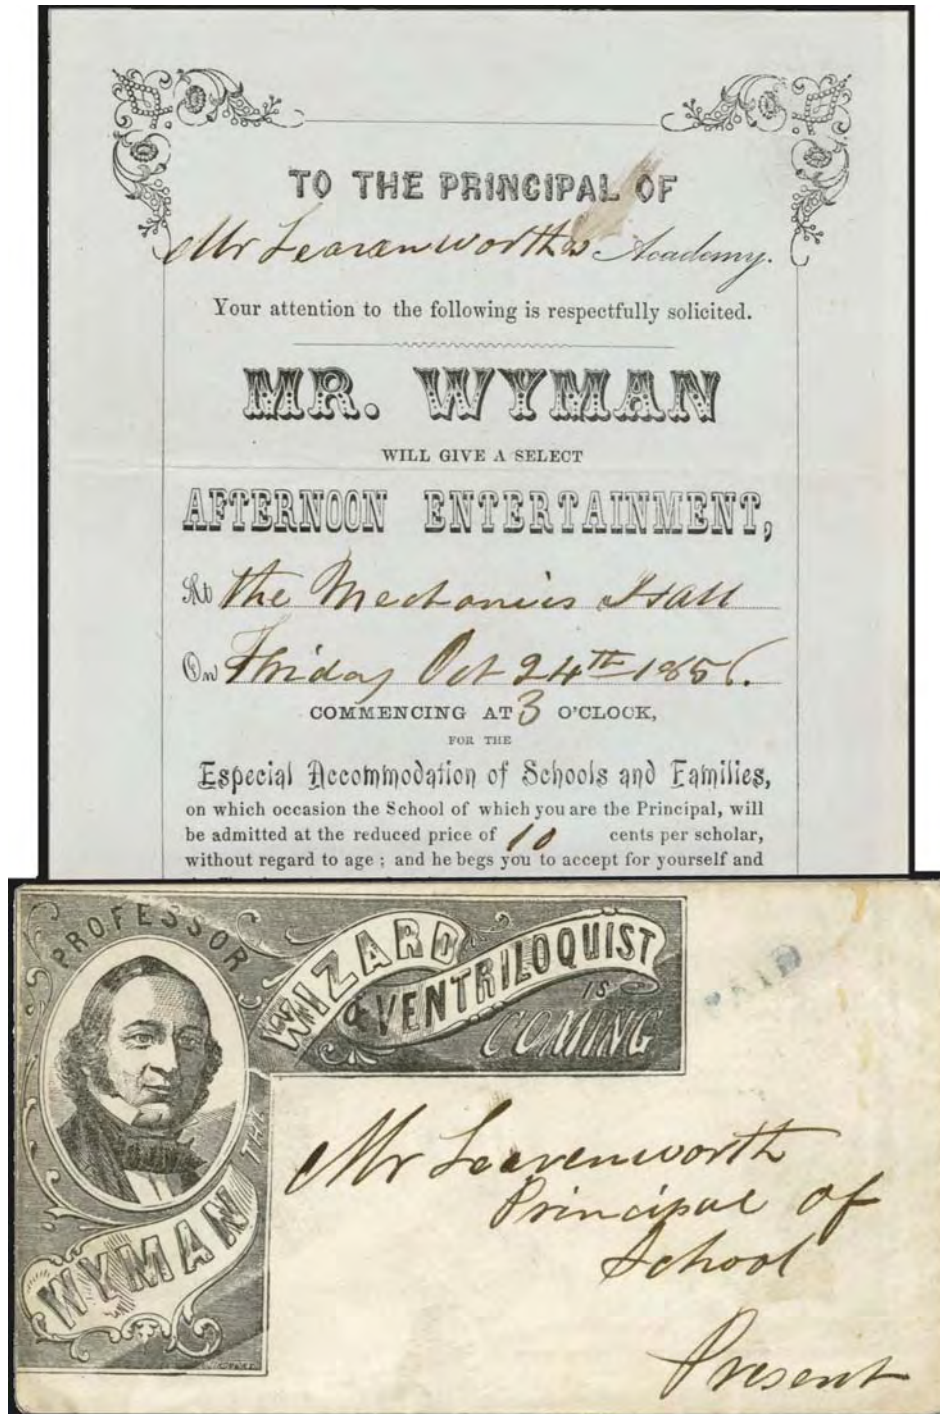 TO THE PRINCIPAL OF
Mr Leavenworths Academy.
Your attention to the following is respectfully solicited.
MR. WYMAN
WILL GIVE A SELECT
AFTERNOON ENTERTAINMENT,
At the Mechanics Hall
On Friday Oct 24th 1856.
COMMENCING AT 3 O'CLOCK,
FOR THE
Especial Accommodation of Schools and Families,
on which occasion the School of which you are the Principal, will
be admitted at the reduced price of 10 cents per scholar,
without regard to age ; and he begs you to accept for yourself and
PROFESSOR
WYMAN THE
WIZARD
& VENTRILOQUIST
IS
COMING
PAID
Mr Leavenworth
Principal of
School
Present